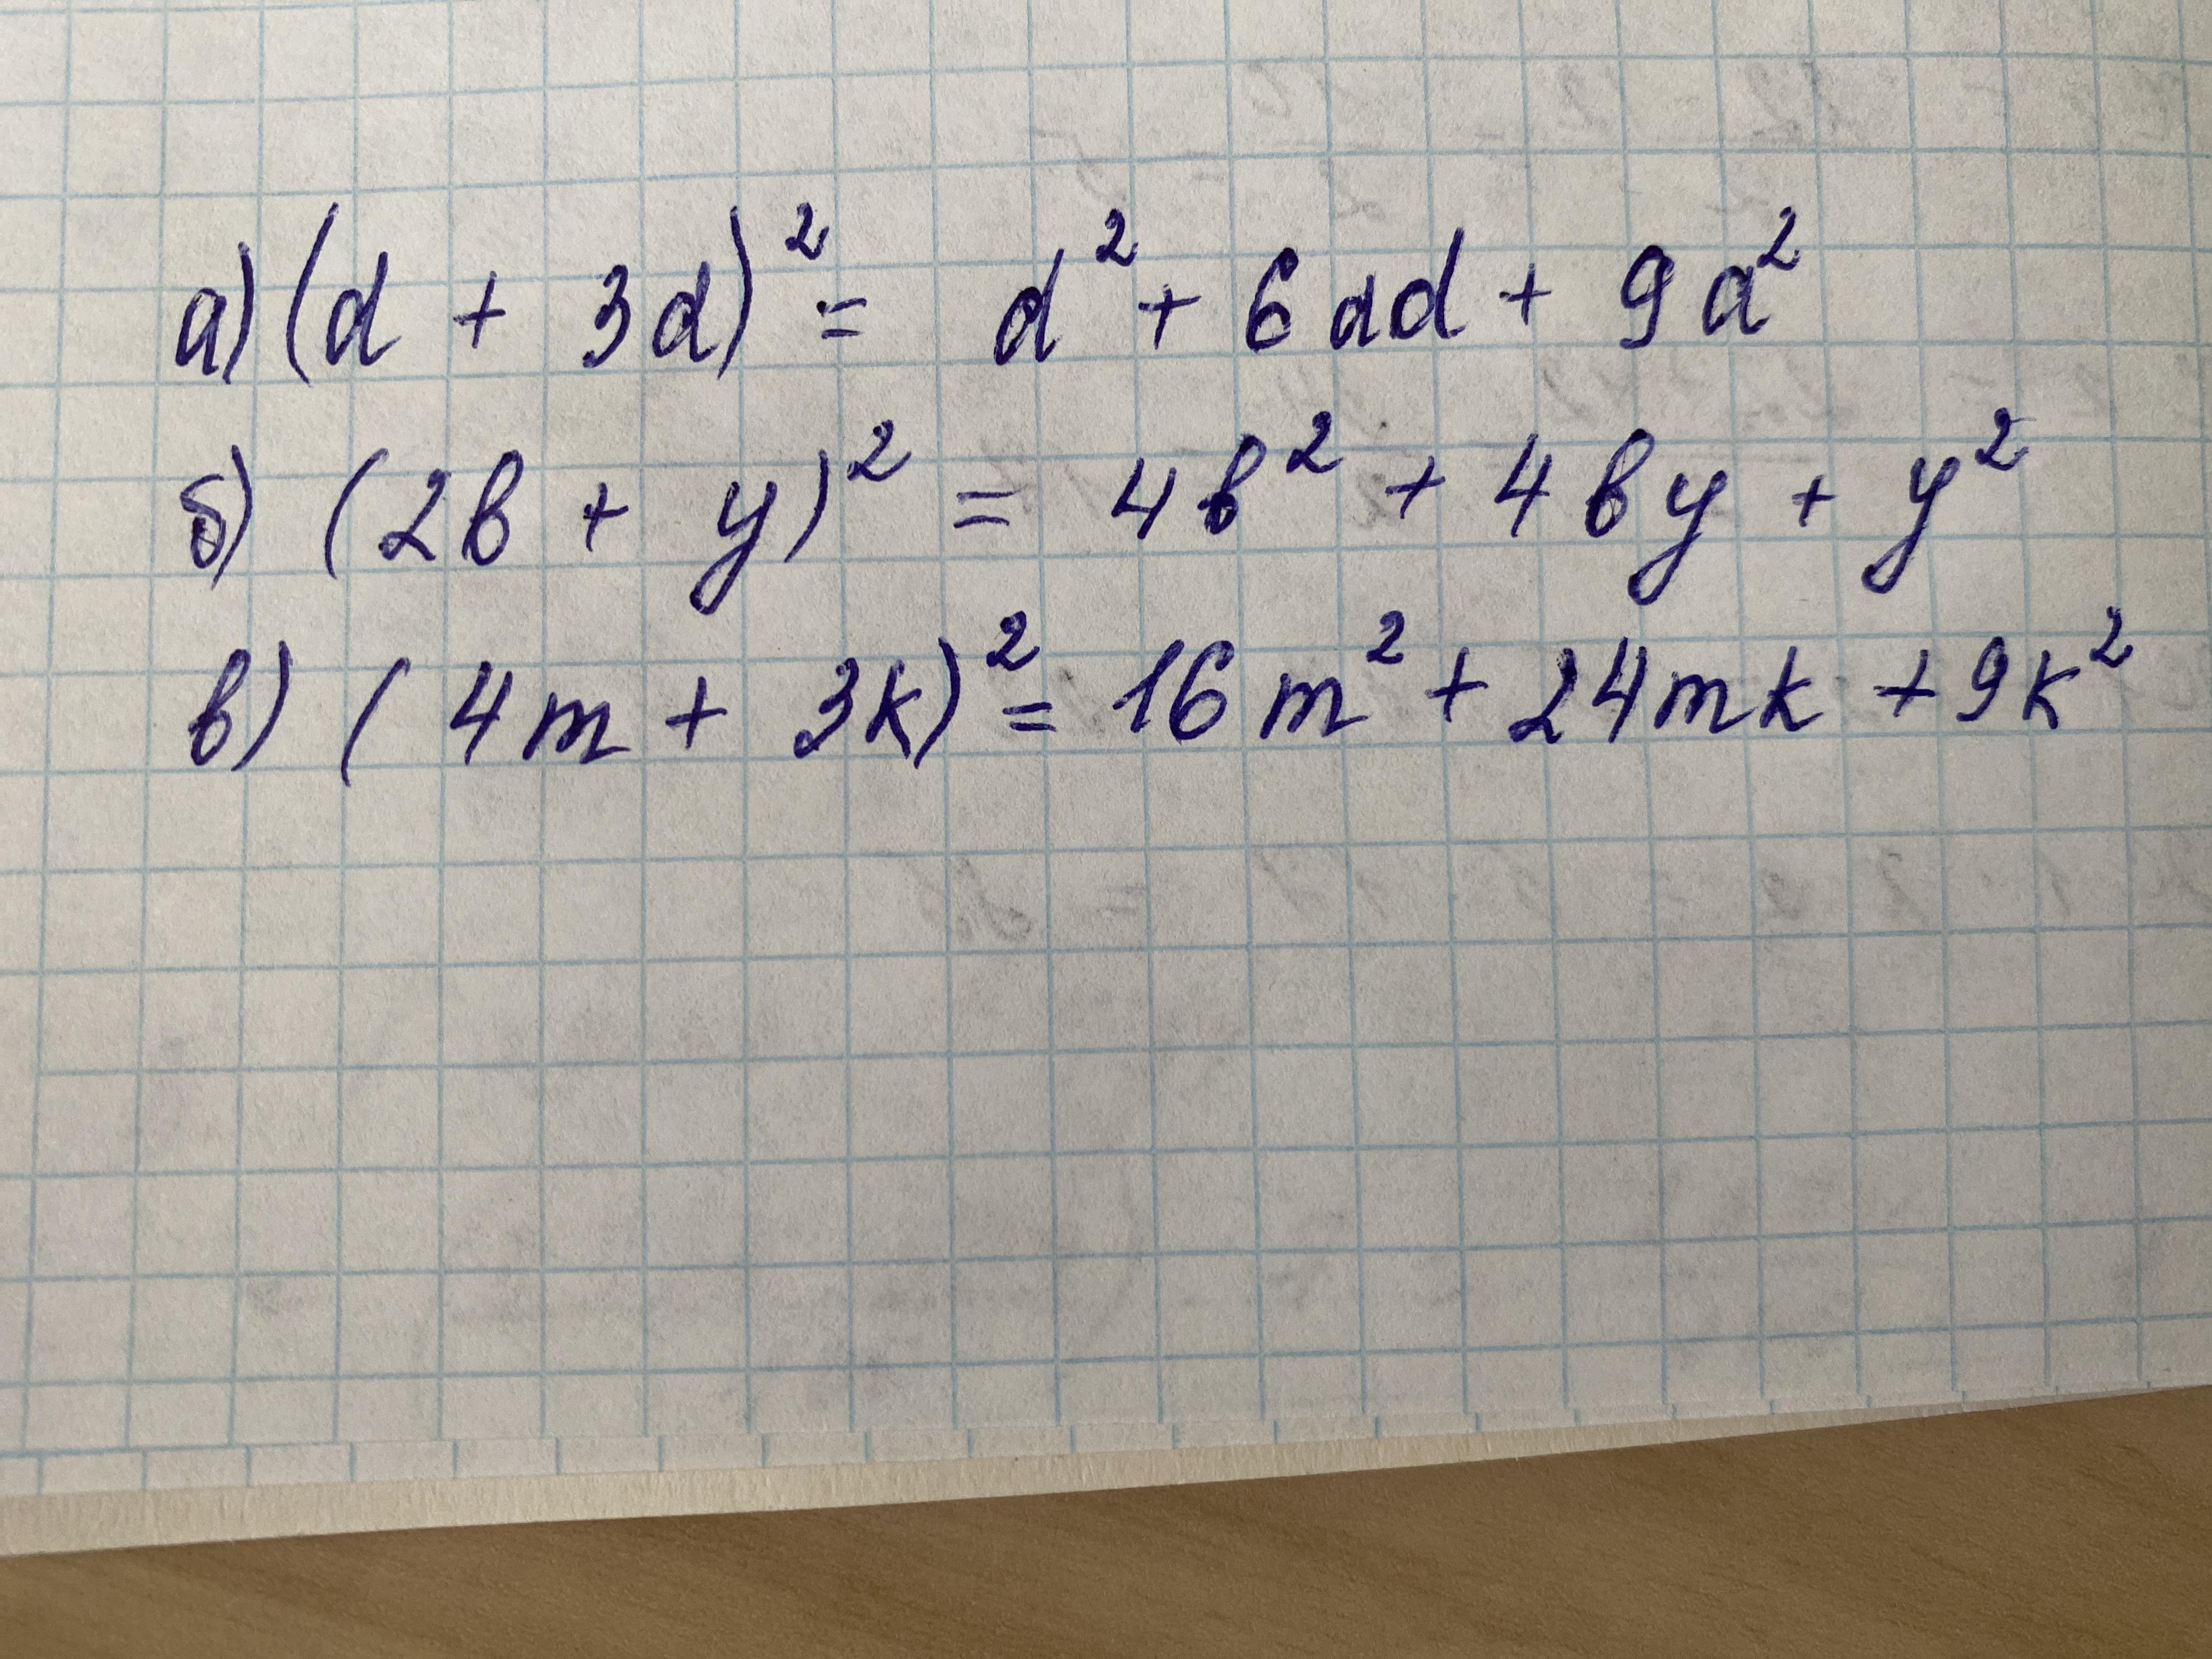 а) (d + 3a)² = d² + 6ad + 9a²
б) (2b + y)² = 4b² + 4by + y²
в) (4m + 3k)² = 16m² + 24mk + 9k²